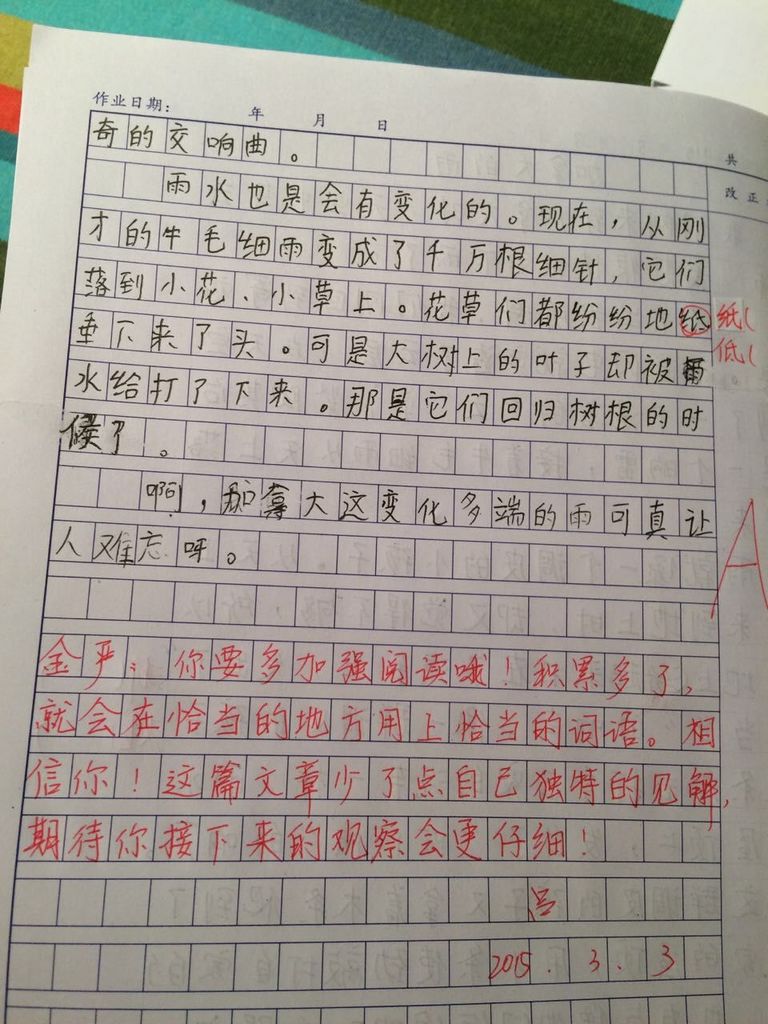 作业日期： 年 月 日
共
奇的交响曲。
改正
雨水也是会有变化的。现在，从刚
才的牛毛细雨变成了千万根细针，它们
落到小花、小草上。花草们都纷纷地纸
纸(
垂下来了头。可是大树上的叶子却被雨
低(
水给打了下来。那是它们回归树根的时
候了。
啊，加拿大这变化多端的雨可真让
人难忘呀。
A
金严：你要多加强阅读哦！积累多了，
就会在恰当的地方用上恰当的词语。相
信你！这篇文章少了点自己独特的见解，
期待你接下来的观察会更仔细！
吕
2015.3.3